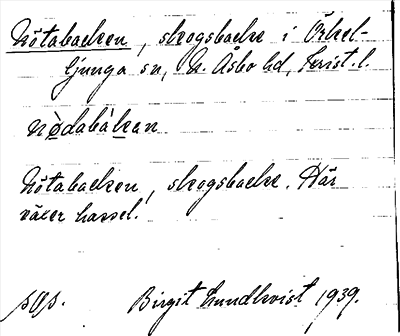 Nötabacken, skogsbacke i Örkel-
ljunga sn, N. Åsbo hd, Krist. l.
nø̀dabàkan
Nötabacken, skogsbacke. Här
växer hassel.
Birgit Lundkvist 1939.